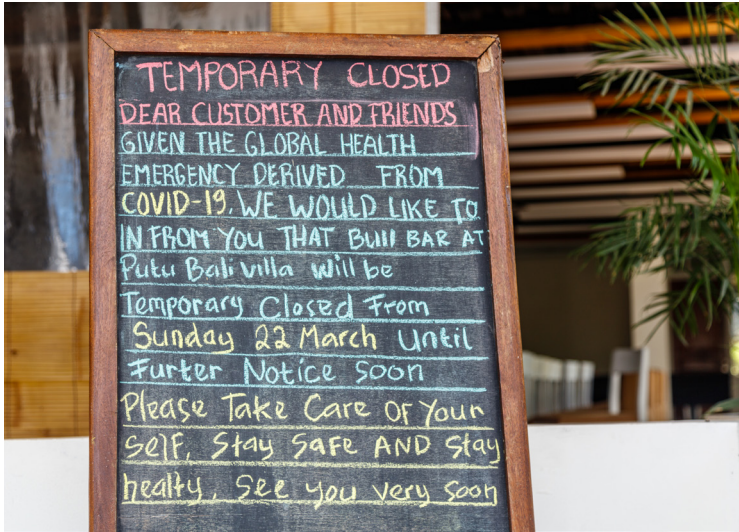 TEMPORARY CLOSED
DEAR CUSTOMER AND FRIENDS
GIVEN THE GLOBAL HEALTH
EMERGENCY DERIVED FROM
COVID-19. WE WOULD LIKE TO
IN FROM YOU THAT BUll BAR AT
Putu Bali villa will be
Temporary Closed From
Sunday 22 March Until
Furter Notice Soon
Please Take Care Of Your
Self, Stay Safe AND Stay
healty, See you very soon